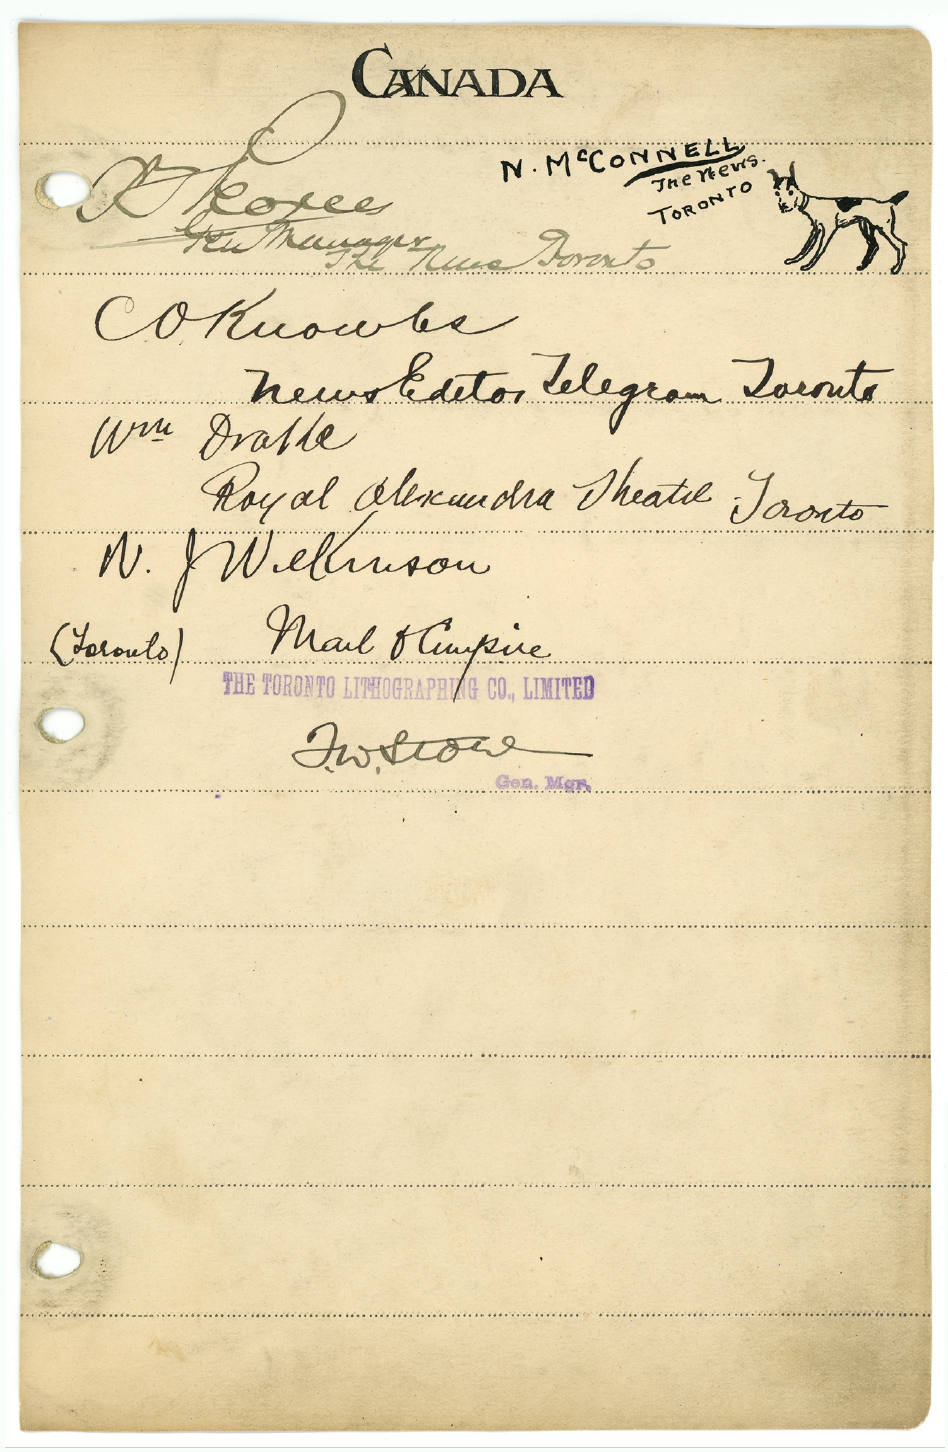 CANADA
Gen Manager
The News Toronto
N. McCONNELL
The News.
TORONTO
C O Knowles
News Editor Telegram Toronto
Wm
Royal Alexandra Theatre Toronto
N. J Wilkinson
(Toronto) Mail & Empire
THE TORONTO LITHOGRAPHING CO., LIMITED
F.W. Stone
Gen. Mgr.